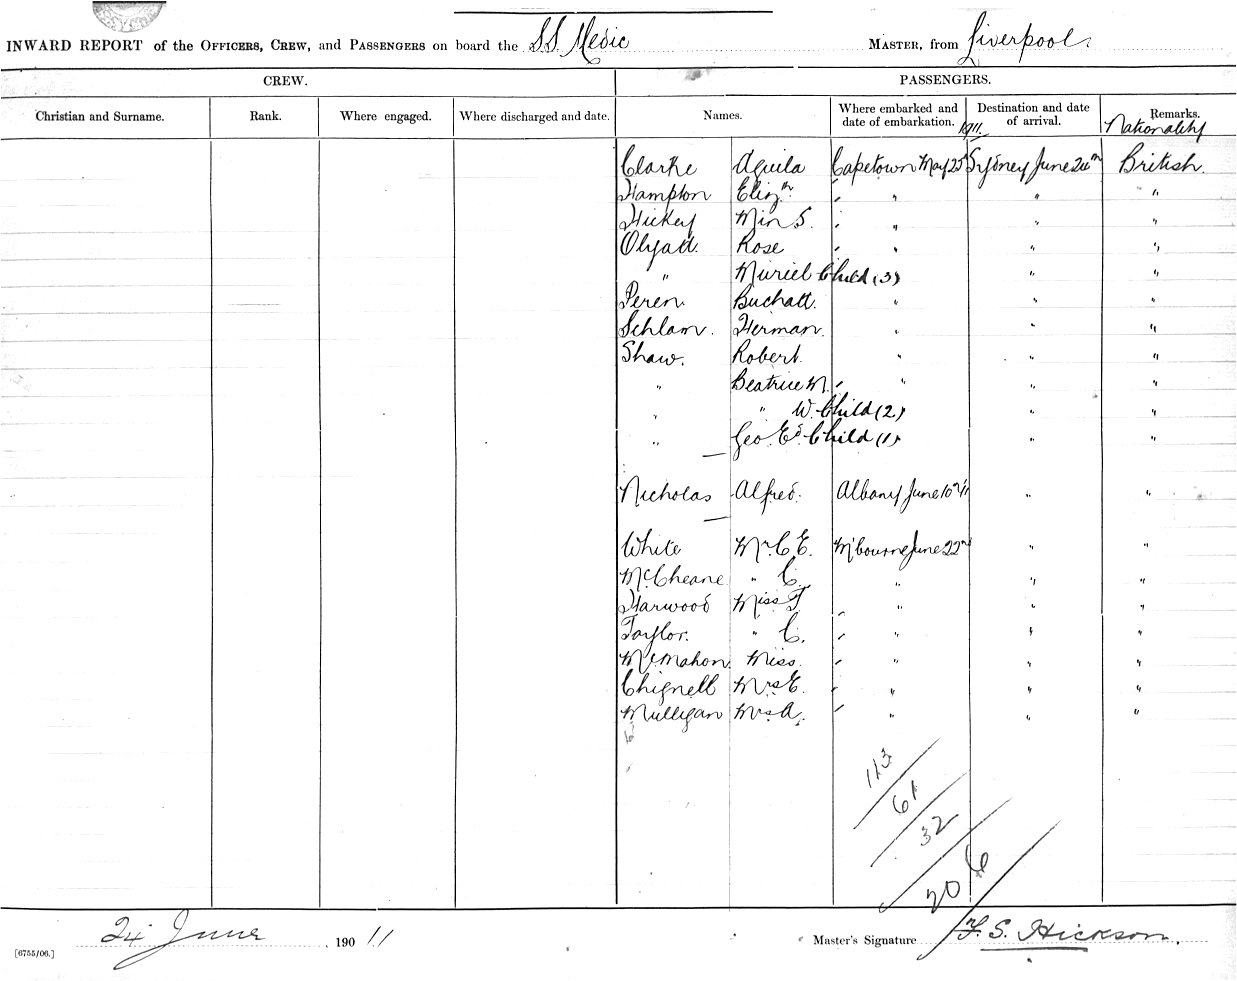 INWARD REPORT of the OFFICERS, CREW, and PASSENGERS on board the S.S. Medic MASTER, from Liverpool.
CREW. PASSENGERS.
Christian and Surname. Rank. Where engaged. Where discharged and date. Names. Where embarked and date of embarkation. 1911. Destination and date of arrival. Remarks. Nationality
Clarke Aquila Capetown May 25th Sydney June 24th British.
Hampton Elizth " " " "
Hickey Min S. " " " "
Olyatt. Rose " " " "
" Muriel Child (3) " "
Peren Buchatt. " " "
Schlam. Herman. " " "
Shaw. Robert. " " "
" Beatrice M. " " " "
" " W. Child (2) " "
" Geo Ed. Child (1) " "
Nicholas Alfred. Albany June 10th/11 " "
White Mr C. E. M'bourne June 22nd " "
McCheane " C. " " "
Harwood Miss F " " " "
Taylor. " C. " " " "
McMahon Miss. " " " "
Chignell Mrs E. " " " "
Mulligan Mrs A. " " " "
113
61
32
206
24 June 190 11 Master's Signature F. S. Hickson.
[6755/06.]